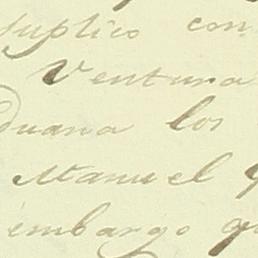 suplico con
Ventura
duana los
Manuel
embargo